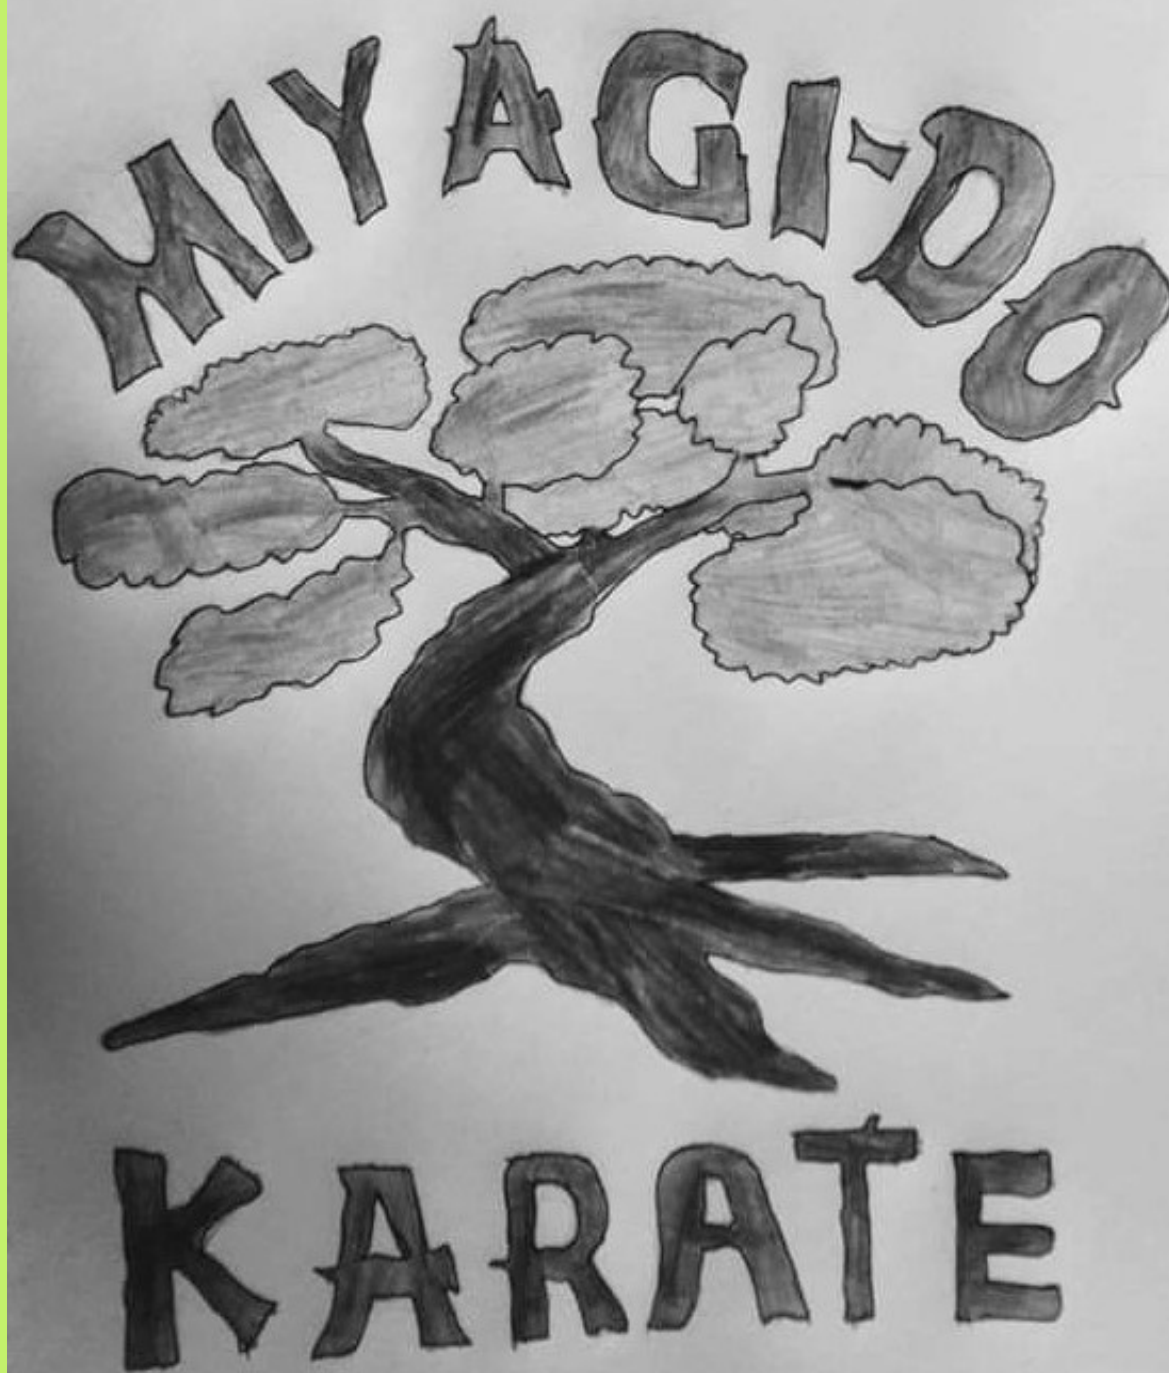 MIYAGI-DO
KARATE